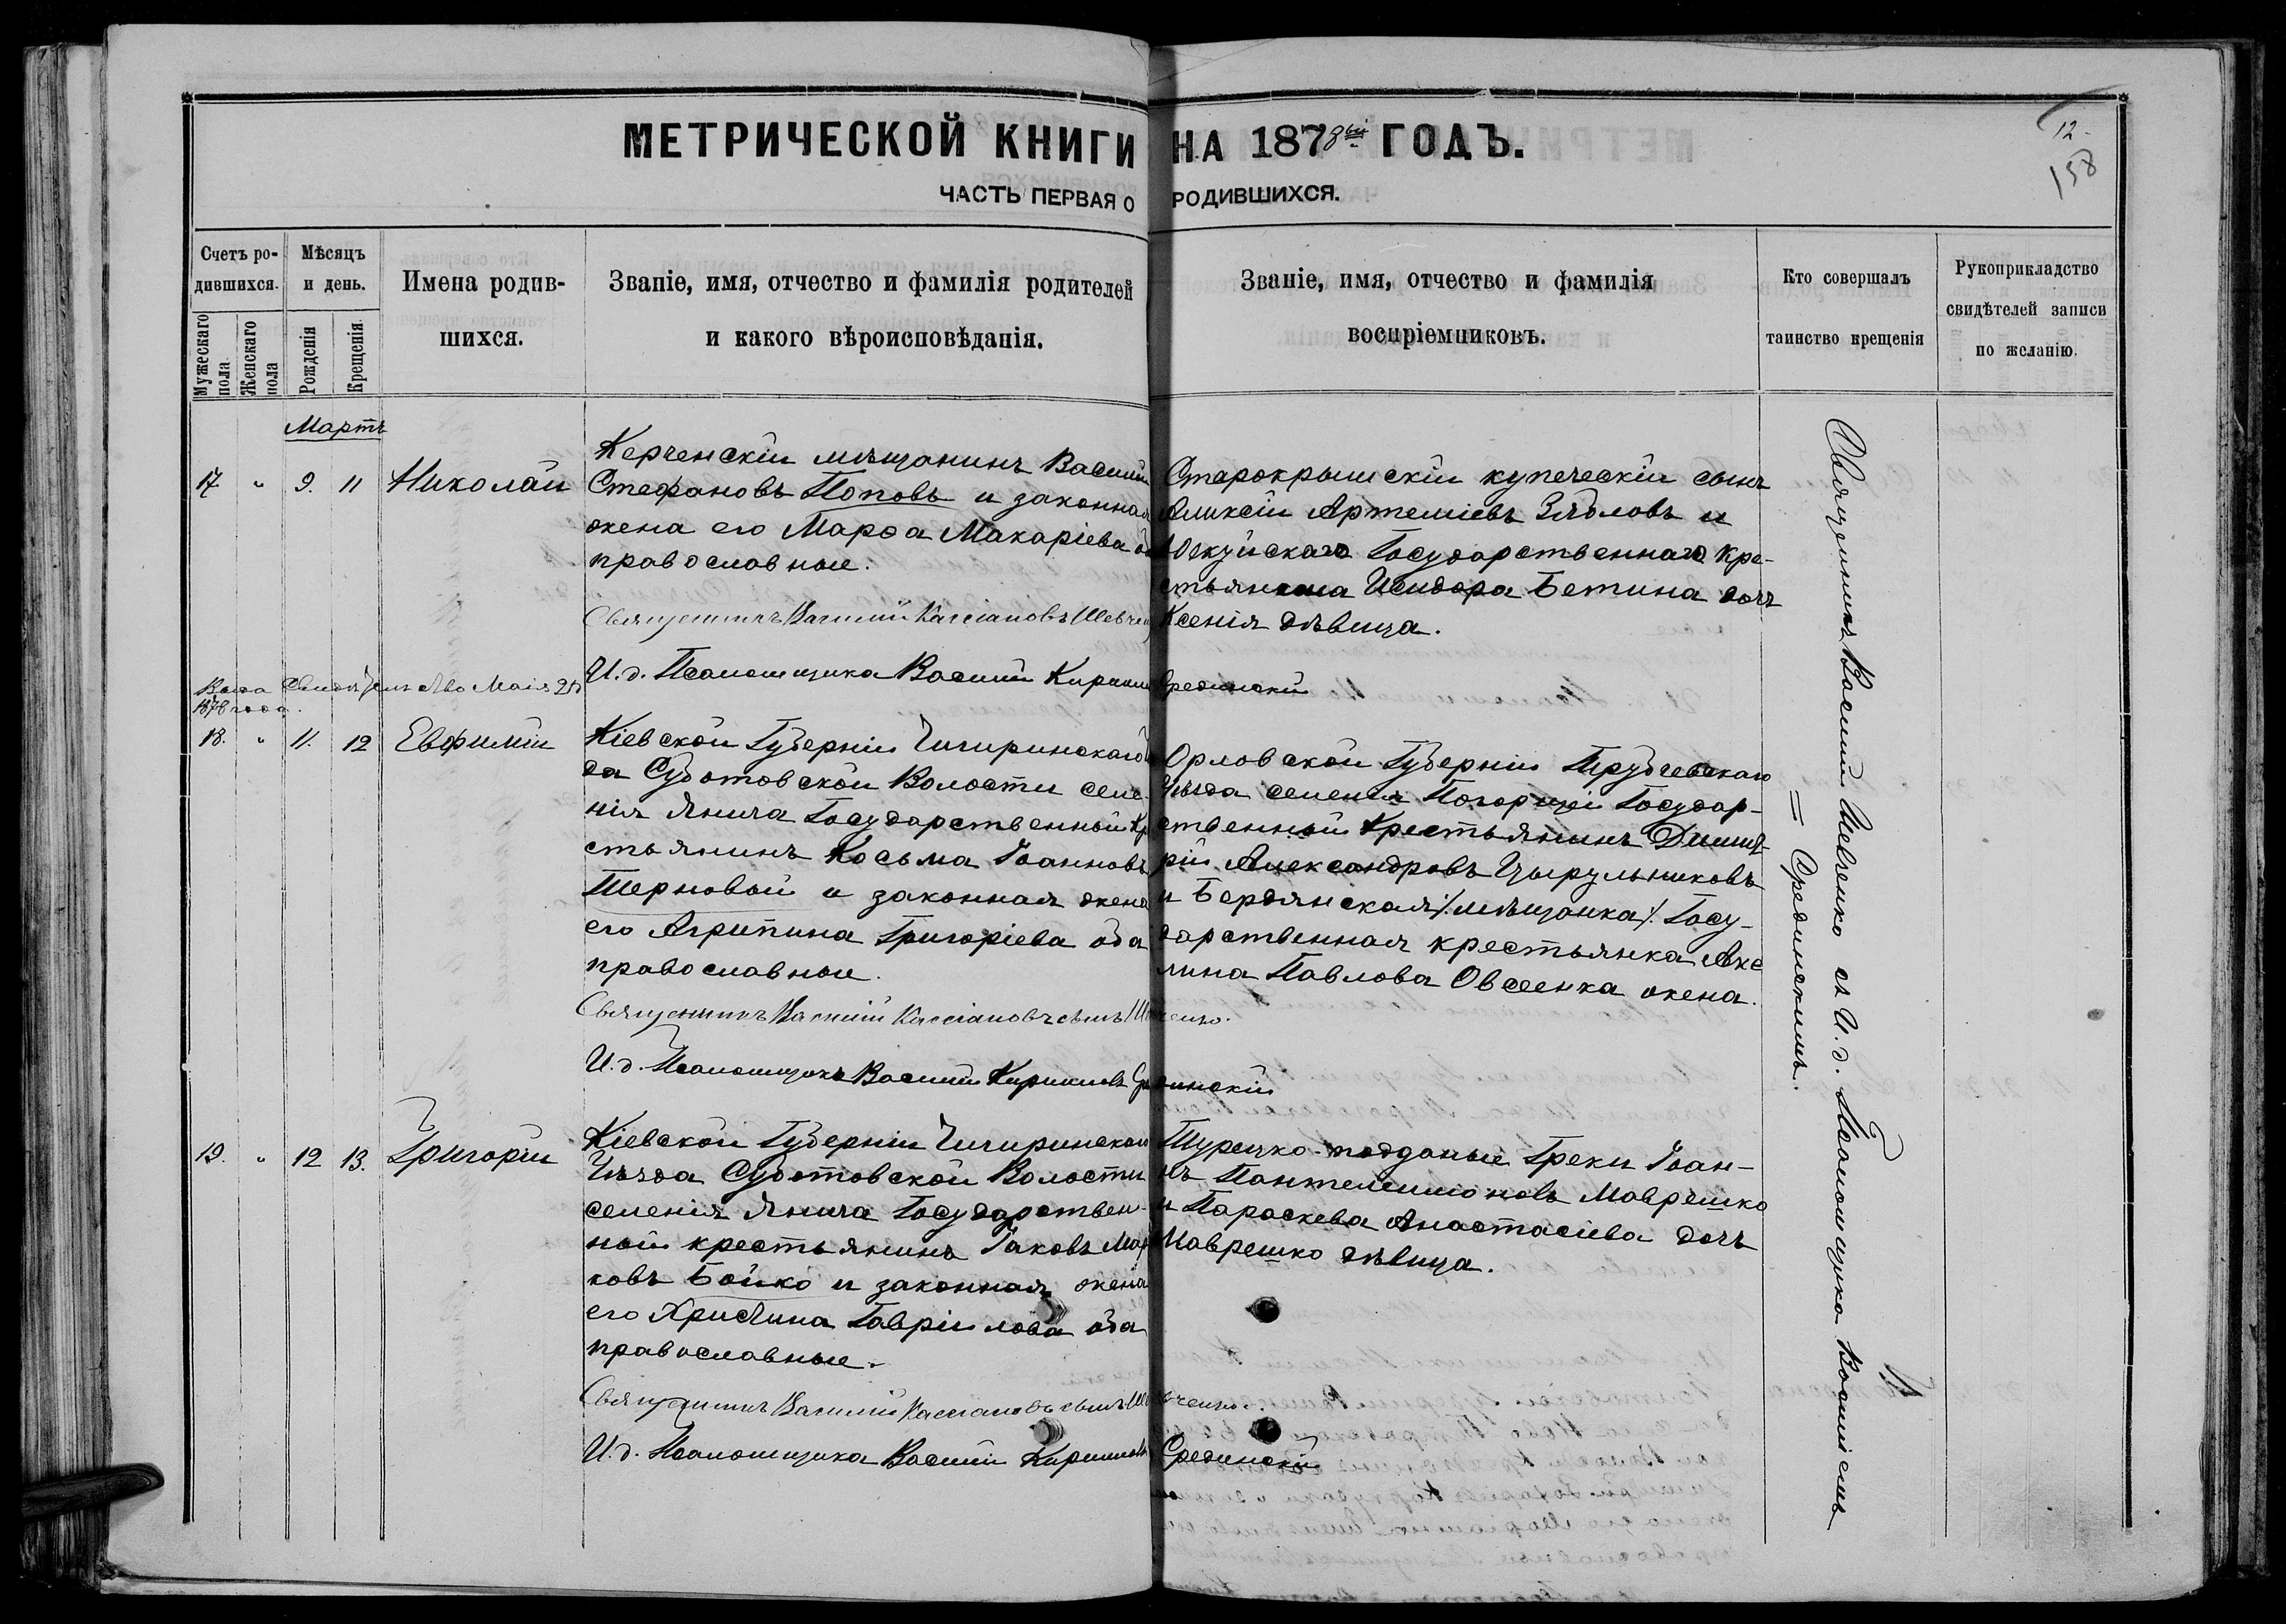 МЕТРИЧЕСКОЙ КНИГИ НА 1878ый ГОДЪ.
ЧАСТЬ ПЕРВАЯ О РОДИВШИХСЯ.
12.
158
Счетъ родившихся.
Мужескаго пола
Женскаго пола
Мѣсяцъ и день.
Рожденія
Крещенія.
Имена родив-
шихся.
Званіе, имя, отчество и фамилія родителей
и какого вѣроисповѣданія.
Званіе, имя, отчество и фамилія
воспріемниковъ.
Кто совершалъ
таинство крещенія
Рукоприкладство
свидѣтелей записи
по желанію.
Мартъ
17. " 9. 11 Николай
Керченскій мѣщанинъ Василій
Стефановъ Поповъ и законная
жена его Марѳа Макаріева
православные.
Священникъ Василій Кассіановъ
И.д. Псаломщика Василій Кирилловъ Срединскій
Старокрымскій купеческій сынъ
Аликсій Артеміевъ Зябловъ и
Государственнаго кре-
стьянина Исидора Бетина дочь
Ксенія дѣвица.
Мая
1878 года.
18. " 11. 12 Евфимій
Кіевской Губерніи Чигиринскаго
да Суботовской Волости селе-
нія Янича Государственный кре
стьянинъ Косьма Іоанновъ
Терновой и законная жена
его Агрипина Григоріева оба
православные.
Священникъ Василій Кассіановъ сынъ Шевченко.
И.д. Псаломщика Василій Кирилловъ Срединскій
Орловской Губерніи Трубчевскаго
Уѣзда селенія Государ-
ственный Крестьянинъ Димит-
рій Александровъ Цырульниковъ
и Бердянская /мѣщанка/ Госу-
дарственная крестьянка Аки
лина Павлова Овсеенка жена.
19. " 12 13. Григорій
Кіевской Губерніи Чигиринскаго
Уѣзда Суботовской Волости
селенія Янича Государствен-
ной крестьянинъ Іаковъ Мар
ковъ Бойко и законная жена
его Христина Гавріилова оба
православные.
Священникъ Василій Кассіановъ сынъ Шевченко.
И.д. Псаломщика Василій Кирилловъ Срединскій
Турецко-подданые Греки Іоан-
нъ Пантелеимоновъ Маврешко
и Параскева Анастасіева дочь
Маврешко дѣвица.
Священникъ Василій Шевченко съ И.д. Псаломщика Василіемъ
Срединскимъ.